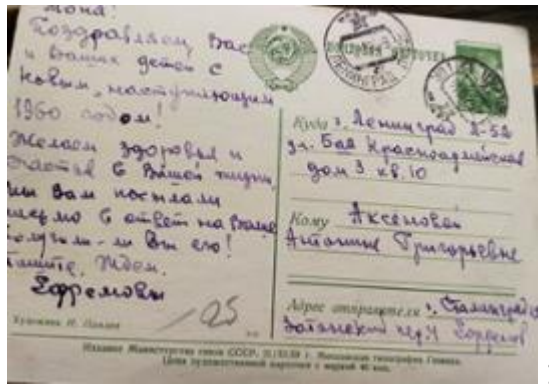 Поздравляем Вас
и Ваших детей с
Новым, наступающим
1960 годом!
Желаем здоровья и
счастья в Вашей жизни,
мы Вам послали
письмо в ответ на Ваше
получили-ли Вы его?
Пишите, Ждем.
Ефремовы
25
Художник И.
ЛЕНИНГРАД
Куда г. Ленинград Л-52
ул. 6ая Красноармейская
дом 3 кв. 10
Кому Аксеновой
Антонине Григорьевне
Адрес отправителя г. Сталинград
Издание Министерства связи СССР.
Цена художественной карточки с маркой 40 коп.